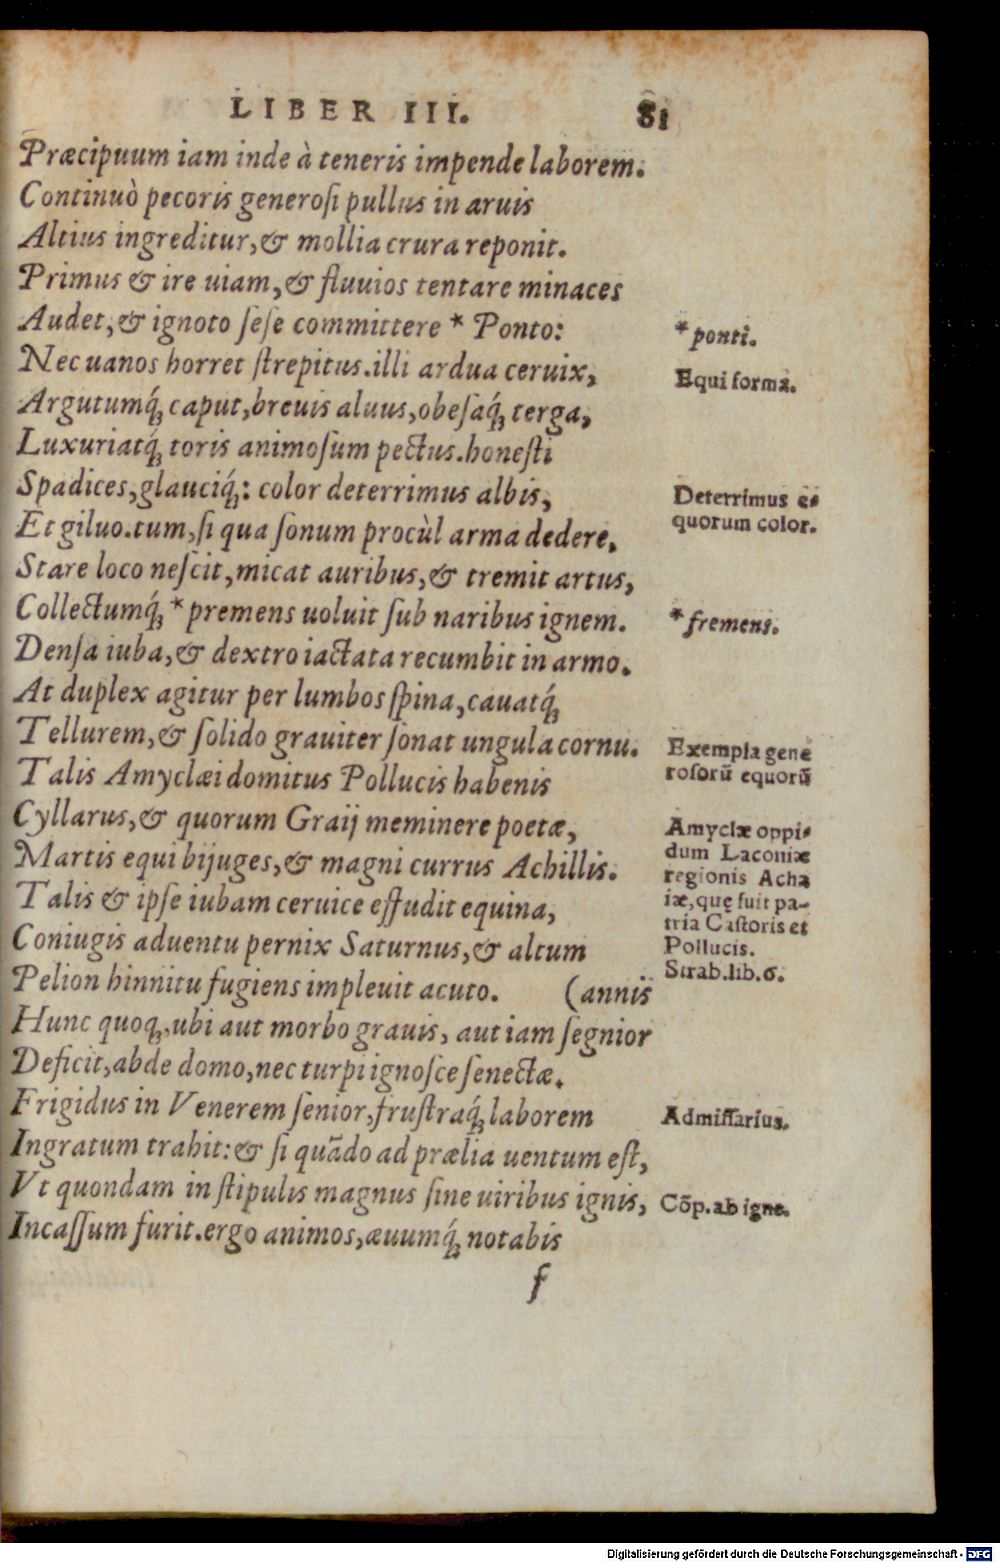 LIBER III. 81
Præcipuum iam inde à teneris impende laborem.
Continuò pecoris generoſi pullus in aruis
Altius ingreditur,& mollia crura reponit.
Primus & ire uiam,& fluuios tentare minaces
Audet,& ignoto ſeſe committere * Ponto:
* ponti.
Nec uanos horret ſtrepitus.illi ardua ceruix,
Equi forma.
Argutumq́; caput,breuis aluus,obeſaq́; terga,
Luxuriatq́; toris animoſum pectus.honeſti
Spadices,glauciq́;: color deterrimus albis,
Deterrimus e⸗
quorum color.
Et giluo.tum,ſi qua ſonum procùl arma dedere,
Stare loco neſcit,micat auribus,& tremit artus,
Collectumq́; * premens uoluit ſub naribus ignem.
* fremens.
Denſa iuba,& dextro iactata recumbit in armo.
At duplex agitur per lumbos ſpina,cauatq́;
Tellurem,& ſolido grauiter ſonat ungula cornu.
Exempla gene
roſorū equorū
Talis Amyclæi domitus Pollucis habenis
Cyllarus,& quorum Graij meminere poetæ,
Amyclæ oppi⸗
dum Laconiæ
regionis Acha
iæ,quę fuit pa-
tria Caſtoris et
Pollucis.
Strab.lib.6.
Martis equi bijuges,& magni currus Achillis.
Talis & ipſe iubam ceruice effudit equina,
Coniugis aduentu pernix Saturnus,& altum
Pelion hinnitu fugiens impleuit acuto. (annis
Hunc quoq;,ubi aut morbo grauis, aut iam ſegnior
Deficit,abde domo,nec turpi ignoſce ſenectæ.
Frigidus in Venerem ſenior,fruſtraq́; laborem
Admiſſarius.
Ingratum trahit:& ſi quādo ad prælia uentum eſt,
Vt quondam in ſtipulis magnus ſine uiribus ignis,
Cōp.ab igne.
Incaſſum furit.ergo animos,æuumq́; notabis
f
Digitalisierung gefördert durch die Deutsche Forschungsgemeinschaft - DFG